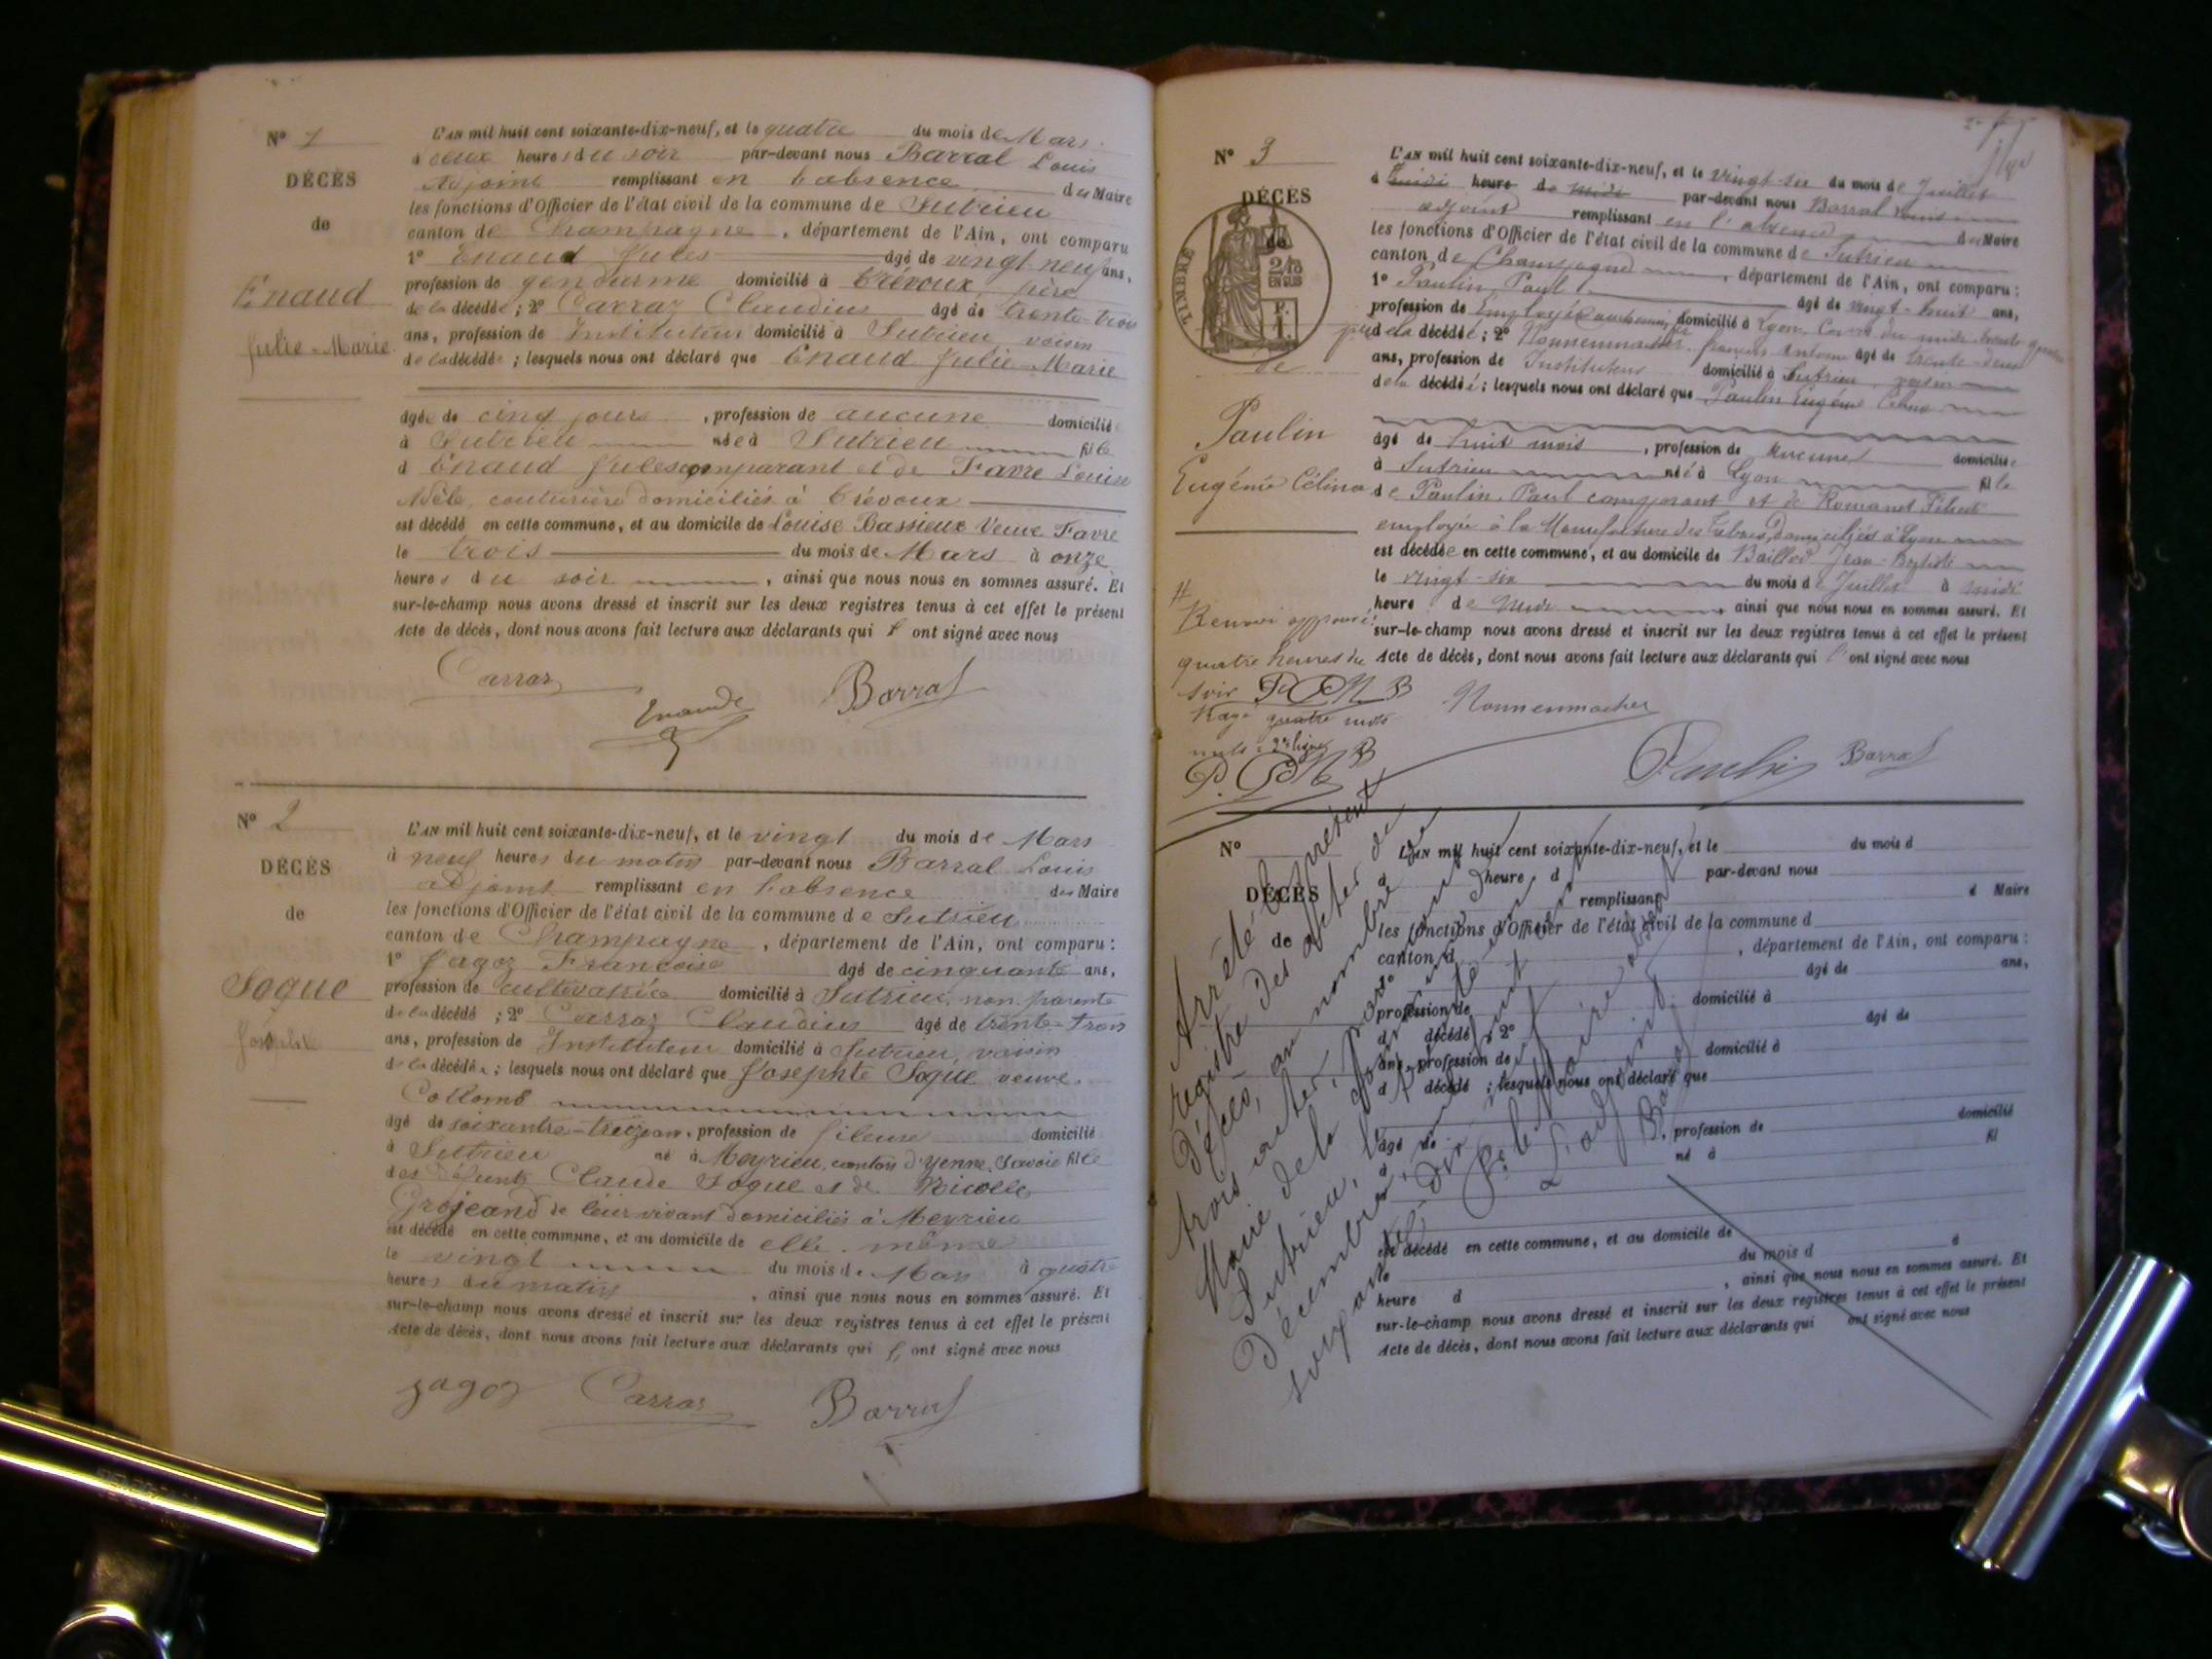 N° 1
DÉCÈS
de
Enaud
Julie-Marie
L'AN mil huit cent soixante-dix-neuf, et le quatre du mois de Mars
à deux heures du soir par-devant nous Barral Louis
Adjoint remplissant en l'absence du Maire
les fonctions d'Officier de l'état civil de la commune de Sutrieu
canton de Champagne, département de l'Ain, ont comparu
1° Enaud Jules âgé de vingt-neuf ans,
profession de gendarme domicilié à Trévoux, père
de la décédée; 2° Carraz Claudius âgé de trente-trois
ans, profession de Instituteur domicilié à Sutrieu, voisin
de la décédée; lesquels nous ont déclaré que Enaud Julie-Marie
âgée de cinq jours, profession de aucune domiciliée
à Sutrieu née à Sutrieu fille
d'Enaud Jules comparant et de Favre Louise
Adèle, couturière domiciliés à Trévoux
est décédé en cette commune, et au domicile de Louise Bassieux Veuve Favre
le trois du mois de Mars à onze
heures du soir, ainsi que nous nous en sommes assuré. Et
sur-le-champ nous avons dressé et inscrit sur les deux registres tenus à cet effet le présent
Acte de décès, dont nous avons fait lecture aux déclarants qui l'ont signé avec nous
Carraz Enaud Barral
N° 2
DÉCÈS
de
Soque
L'AN mil huit cent soixante-dix-neuf, et le vingt du mois de Mars
à neuf heures du matin par-devant nous Barral Louis
adjoint remplissant en l'absence du Maire
les fonctions d'Officier de l'état civil de la commune de Sutrieu
canton de Champagne, département de l'Ain, ont comparu:
1° Jagoz Françoise âgé de cinquante ans,
profession de cultivatrice domicilié à Sutrieu, non parente
de la décédé; 2° Carraz Claudius âgé de trente-trois
ans, profession de Instituteur domicilié à Sutrieu, voisin
de la décédée; lesquels nous ont déclaré que Josephte Soque veuve
Collomb
âgé de soixante-treize ans, profession de fileuse domicilié
à Sutrieu né à Meyrieu, canton d'Yenne, Savoie fille
des défunts Claude Soque et de Nicolle
Grojeand de leur vivant domiciliés à Meyrieu
est décédé en cette commune, et au domicile de elle-même
le vingt du mois de Mars à quatre
heures du matin, ainsi que nous nous en sommes assuré. Et
sur-le-champ nous avons dressé et inscrit sur les deux registres tenus à cet effet le présent
Acte de décès, dont nous avons fait lecture aux déclarants qui l'ont signé avec nous
Jagoz Carraz Barral
N° 3
DÉCÈS
de
TIMBRE
2/10 EN SUS
de
Paulin
Eugénie Célina
L'AN mil huit cent soixante-dix-neuf, et le vingt-six du mois de Juillet
à midi heure de midi par-devant nous Barral Louis
adjoint remplissant en l'absence du Maire
les fonctions d'Officier de l'état civil de la commune de Sutrieu
canton de Champagne, département de l'Ain, ont comparu:
1° Paulin, Paul âgé de vingt-huit ans,
profession de Employé au chemin de fer domicilié à Lyon, Cours du midi trente-quatre
père de la décédée; 2° Nonnenmacher françois Antoine âgé de trente-deux
ans, profession de Instituteur domicilié à Sutrieu, voisin
de la décédée; lesquels nous ont déclaré que Paulin Eugénie Célina
âgé de huit mois, profession de Aucune domiciliée
à Sutrieu née à Lyon fille
de Paulin, Paul comparant et de Romanet
employée à la Manufacture des tabacs, Domiciliés à Lyon
est décédée en cette commune, et au domicile de Baillod Jean-Baptiste
le vingt-six du mois de Juillet à midi
heure de midi, ainsi que nous nous en sommes assuré. Et
sur-le-champ nous avons dressé et inscrit sur les deux registres tenus à cet effet le présent
Acte de décès, dont nous avons fait lecture aux déclarants qui l'ont signé avec nous
#
Renvoi approuvé:
quatre heures du
soir P. P. N. B
Rayé quatre mots
nuls: 2e ligne
P. P. N. B
Nonnenmacher
Paulin Barral
N°
DÉCÈS
de
L'AN mil huit cent soixante-dix-neuf, et le du mois d
à heure d par-devant nous
remplissant d Maire
les fonctions d'Officier de l'état civil de la commune d
canton d, département de l'Ain, ont comparu:
1° âgé de ans,
profession de domicilié à
d décédé; 2° âgé de
ans, profession de domicilié à
d décédé; lesquels nous ont déclaré que
âgé de, profession de domicilié
à né à fil
est décédé en cette commune, et au domicile de
le du mois d à
heure d, ainsi que nous nous en sommes assuré. Et
sur-le-champ nous avons dressé et inscrit sur les deux registres tenus à cet effet le présent
Acte de décès, dont nous avons fait lecture aux déclarants qui ont signé avec nous
Arrêté le présent
registre des actes de
Décès, au nombre de
trois actes, par nous
Maire de la commune de
Sutrieu, le trente-un
Décembre mil huit cent
soixante-dix-neuf
Pr le Maire absent
L'adjoint
Barral